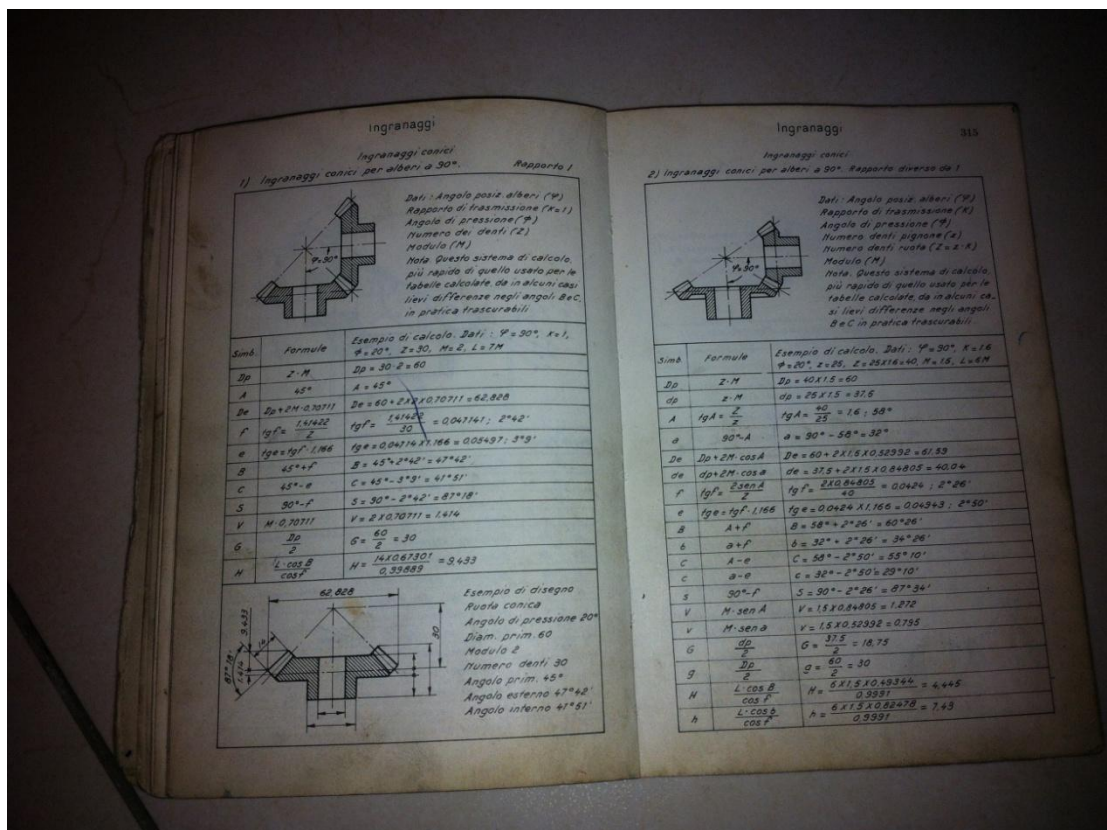 Ingranaggi
Ingranaggi conici
1) Ingranaggi conici per alberi a 90°. Rapporto 1
φ=90°
Dati: Angolo posiz. alberi (φ)
Rapporto di trasmissione (K=1)
Angolo di pressione (Φ)
Numero dei denti (Z)
Modulo (M)
Nota. Questo sistema di calcolo,
più rapido di quello usato per le
tabelle calcolate, da in alcuni casi
lievi differenze negli angoli B e C,
in pratica trascurabili
Simb. Formule Esempio di calcolo. Dati: φ=90°, K=1,
Φ=20°, Z=30, M=2, L=7M
Dp Z·M Dp = 30·2=60
A 45° A = 45°
De Dp+2M·0,70711 De = 60+2x2x0,70711 = 62,828
f tgf= 1,41422/Z tgf= 1,41422/30 = 0,047141; 2°42'
e tge=tgf·1,166 tge=0,04714X1,166 = 0,05497; 3°9'
B 45°+f B = 45°+2°42' = 47°42'
C 45°-e C = 45°-3°9' = 41°51'
S 90°-f S = 90°-2°42' = 87°18'
V M·0,70711 V = 2X0,70711 = 1,414
G Dp/2 G = 60/2 = 30
H L·cos B/cos f H = 14X0,67301/0,99889 = 9,433
62,828
9,433
14
87°18'
1,414
30
Esempio di disegno
Ruota conica
Angolo di pressione 20°
Diam. prim. 60
Modulo 2
Numero denti 30
Angolo prim. 45°
Angolo esterno 47°42'
Angolo interno 41°51'
Ingranaggi 315
Ingranaggi conici
2) Ingranaggi conici per alberi a 90°. Rapporto diverso da 1
φ=90°
Dati: Angolo posiz. alberi (φ)
Rapporto di trasmissione (K)
Angolo di pressione (Φ)
Numero denti pignone (z)
Numero denti ruota (Z=z·K)
Modulo (M)
Nota. Questo sistema di calcolo,
più rapido di quello usato per le
tabelle calcolate, da in alcuni ca-
si lievi differenze negli angoli
B e C in pratica trascurabili.
Simb. Formule Esempio di calcolo. Dati: φ=90°, K=1,6
Φ=20°, z=25, Z=25X1,6=40, M=1,5, L=6M
Dp Z·M Dp = 40X1,5 = 60
dp z·M dp = 25X1,5 = 37,5
A tgA= Z/z tgA= 40/25 = 1,6; 58°
a 90°-A a = 90°-58° = 32°
De Dp+2M·cosA De = 60+2X1,5X0,52992 = 61,59
de dp+2M·cosa de = 37,5+2X1,5X0,84805 = 40,04
f tgf= 2senA/Z tgf= 2X0,84805/40 = 0,0424; 2°26'
e tge=tgf·1,166 tge=0,0424X1,166 = 0,04943; 2°50'
B A+f B = 58°+2°26' = 60°26'
b a+f b = 32°+2°26' = 34°26'
C A-e C = 58°-2°50' = 55°10'
c a-e c = 32°-2°50' = 29°10'
S 90°-f S = 90°-2°26' = 87°34'
V M·senA V = 1,5X0,84805 = 1,272
v M·sena v = 1,5X0,52992 = 0,795
G dp/2 G = 37,5/2 = 18,75
g Dp/2 g = 60/2 = 30
H L·cos B/cos f H = 6X1,5X0,49344/0,9991 = 4,445
h L·cos b/cos f h = 6X1,5X0,82478/0,9991 = 7,43